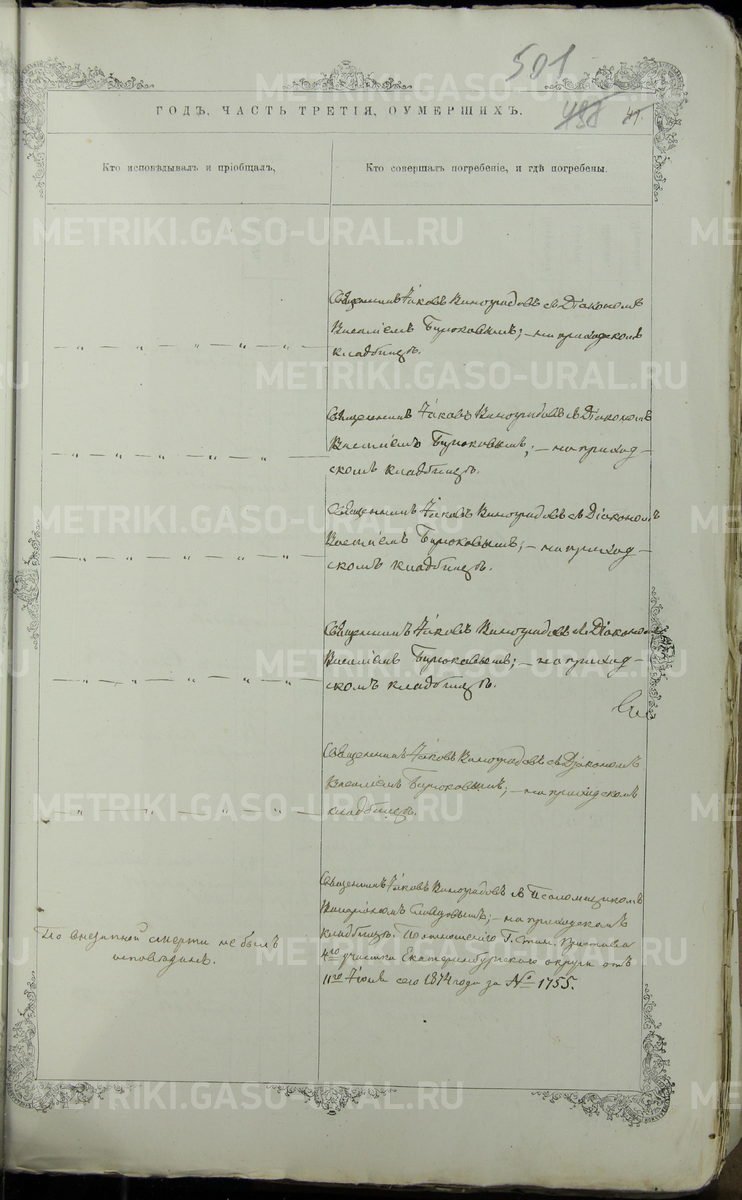 501
ГОДЪ, ЧАСТЬ ТРЕТІЯ, ОУМЕРШИХЪ.
Кто исповѣдывалъ и пріобщалъ,
Кто совершалъ погребеніе, и гдѣ погребены.
Священникъ Іаковъ Виноградовъ съ Діакономъ
Василіемъ Бирюковымъ; – на приходскомъ
кладбищѣ.
Священникъ Іаковъ Виноградовъ съ Діакономъ
Василіемъ Бирюковымъ; – на приход-
скомъ кладбищѣ.
Священникъ Іаковъ Виноградовъ съ Діакономъ
Василіемъ Бирюковымъ; – на приход-
скомъ кладбищѣ.
Священникъ Іаковъ Виноградовъ съ Діакономъ
Василіемъ Бирюковымъ; – на приход-
скомъ кладбищѣ.
Священникъ Іаковъ Виноградовъ съ Діакономъ
Василіемъ Бирюковымъ; – на приходскомъ
кладбищѣ.
По внезапной смерти не былъ
исповѣданъ.
Священникъ Іаковъ Виноградовъ съ Псаломщикомъ
Словцовымъ; – на приходскомъ
кладбищѣ. По отношенію Г. Стан. Пристава
4го участка Екатеринбургскаго округа отъ
11го Іюля сего 1874 года за № 1755.
METRIKI.GASO-URAL.RU